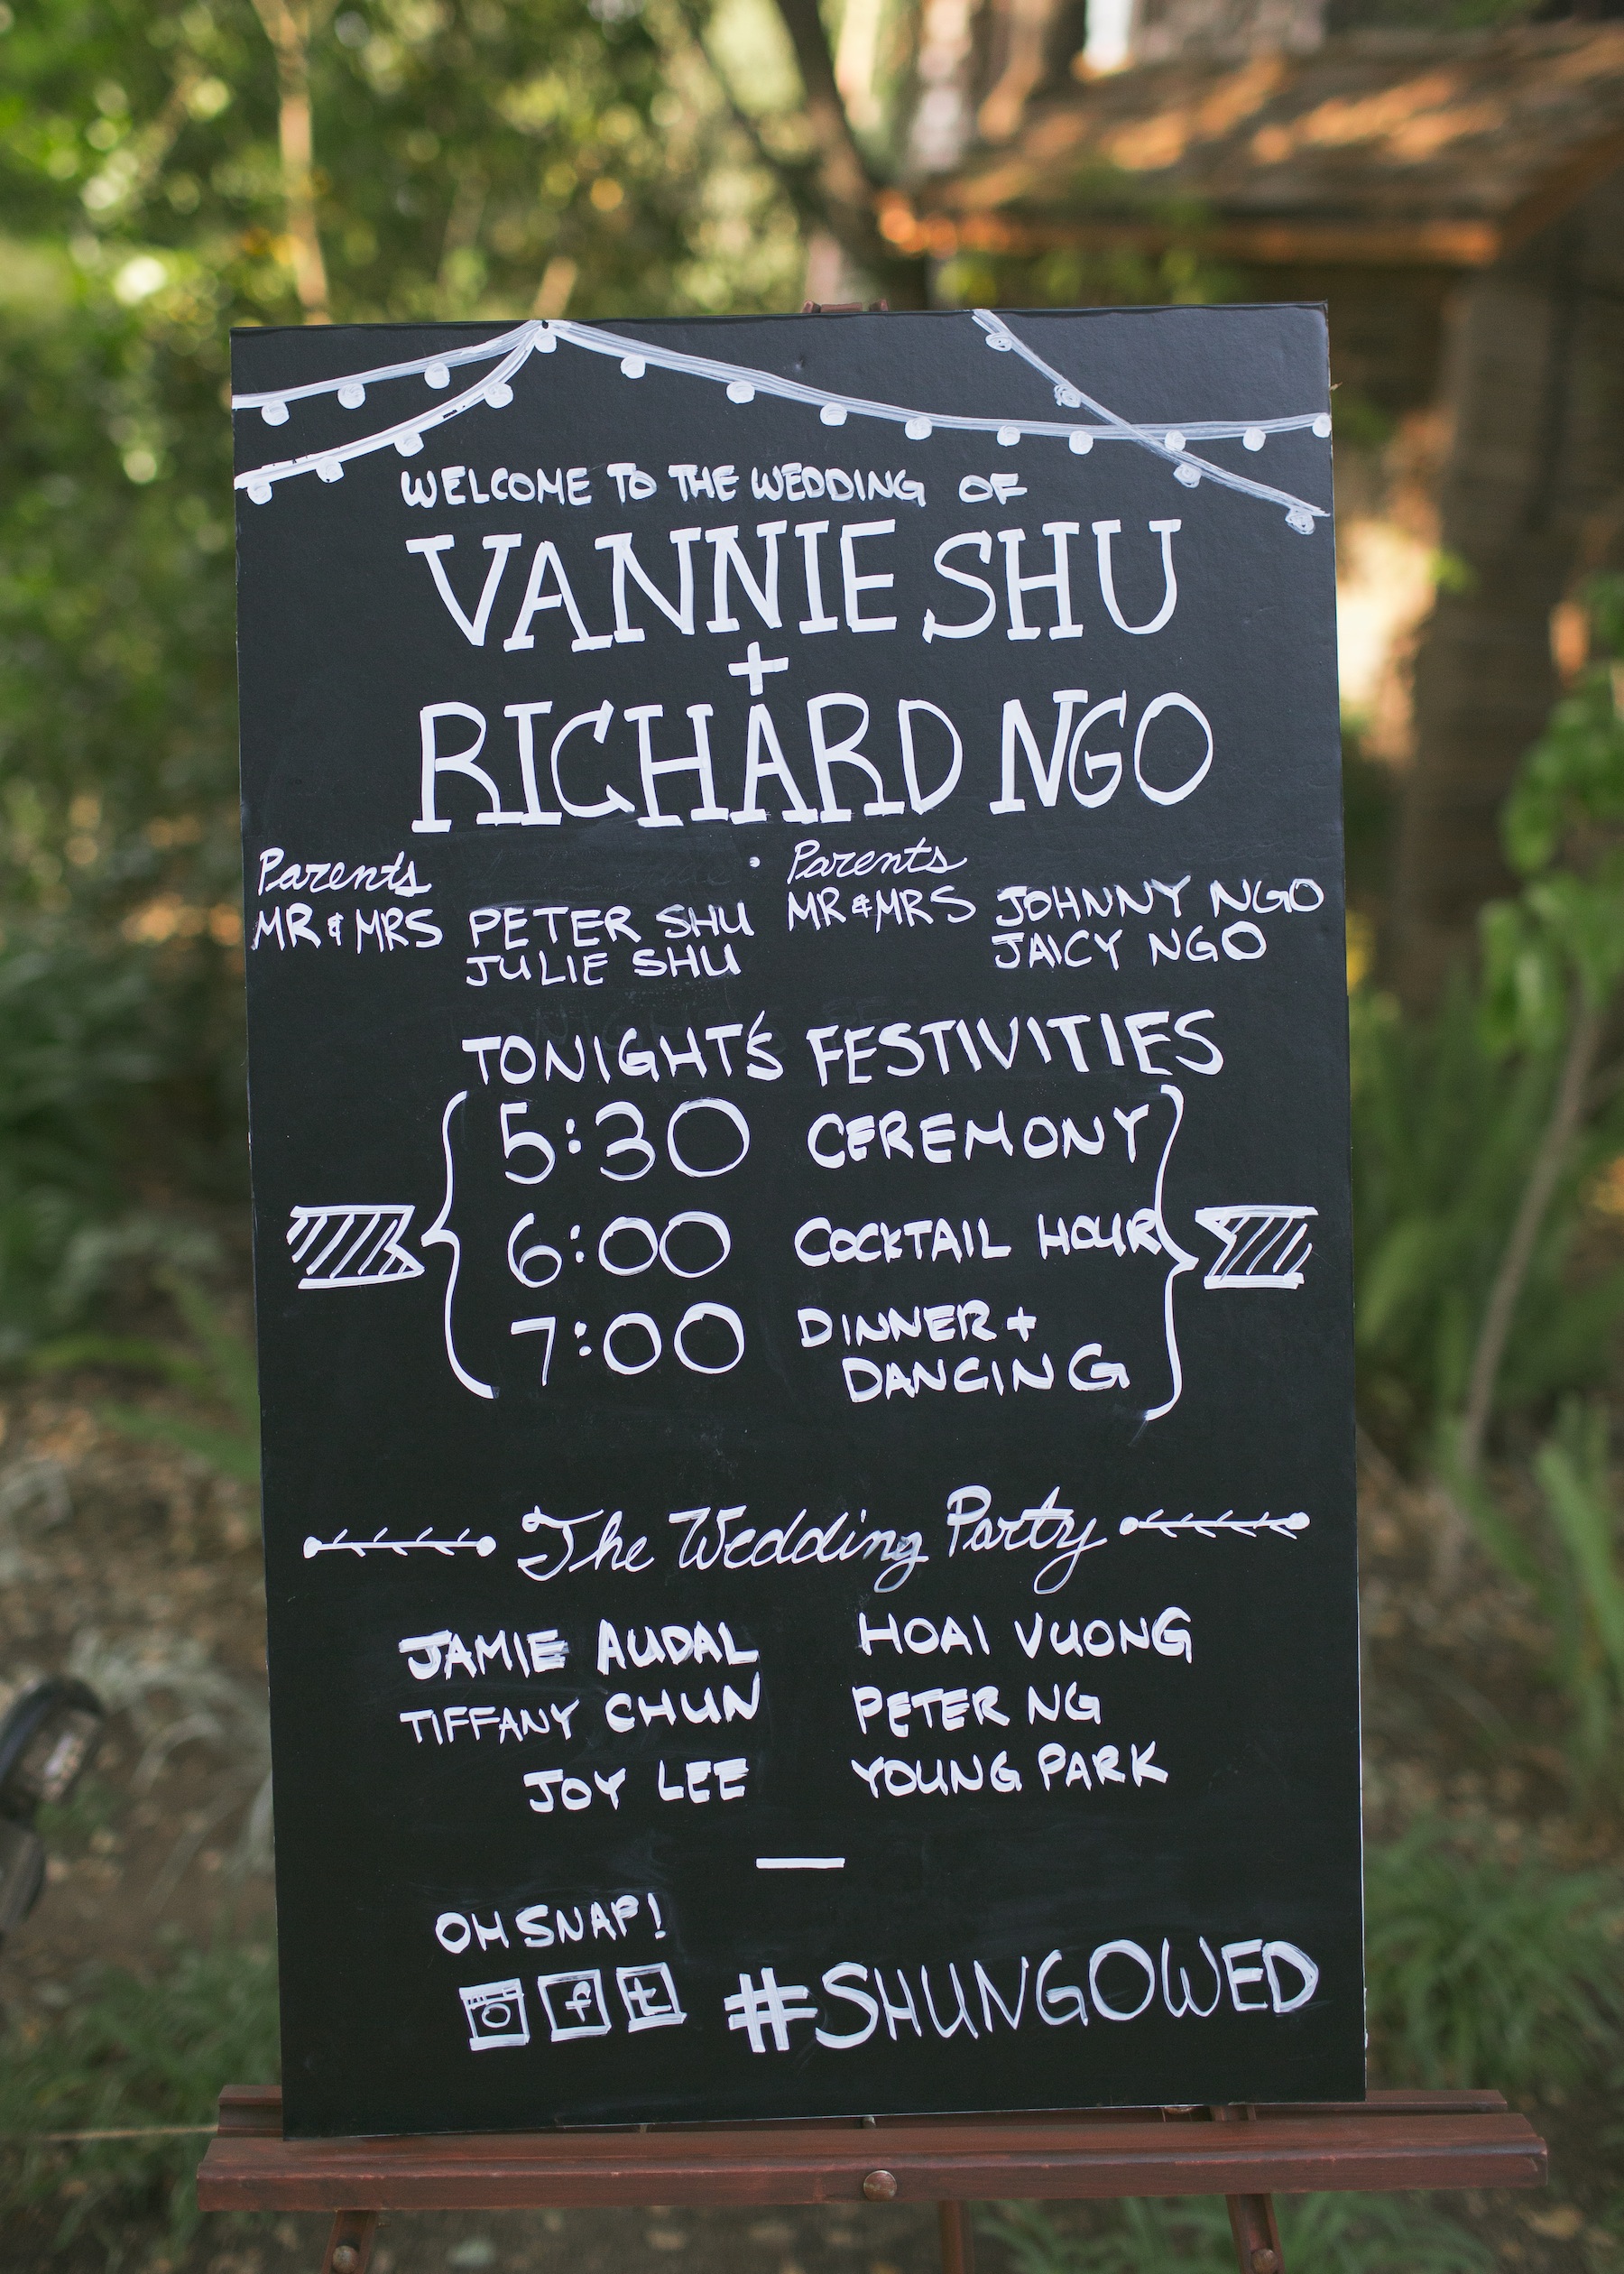 WELCOME TO THE WEDDING OF
VANNIE SHU
+
RICHARD NGO
Parents
MR & MRS PETER SHU
JULIE SHU
Parents
MR & MRS JOHNNY NGO
JAICY NGO
TONIGHT'S FESTIVITIES
5:30 CEREMONY
6:00 COCKTAIL HOUR
7:00 DINNER +
DANCING
The Wedding Party
JAMIE AUDAL HOAI VUONG
TIFFANY CHUN PETER NG
JOY LEE YOUNG PARK
OH SNAP!
f t #SHUNGOWED